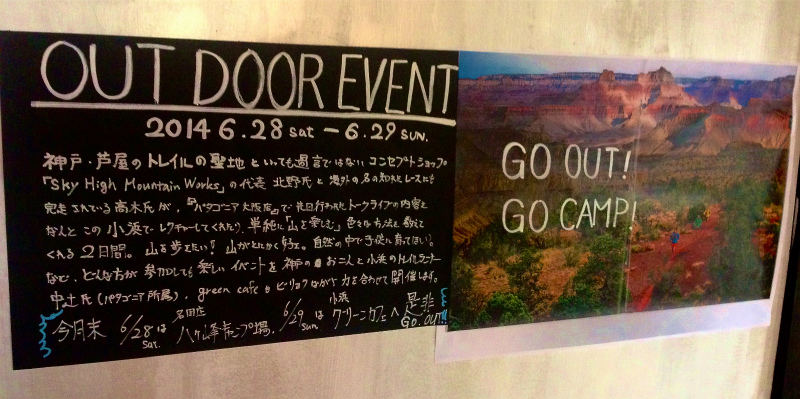 OUT DOOR EVENT
2014 6.28 sat - 6.29 SUN.
神戸・芦屋のトレイルの聖地といっても過言ではない コンセプトショップの
「Sky High Mountain Works」の代表 北野氏と 海外の名の知れたレースにも
完走されている高木氏が、『パタゴニア大阪店』で 先日行われたトークライブの内容を
なんと この小浜でレクチャーしてくれたり、単純に「山を楽しむ」色々な方法を教えて
くれる 2日間。山を歩きたい! 山がとにかく好き。自然の中で子供に育ってほしい。
など、どんな方が 参加しても 楽しい イベントを 神戸の お二人と 小浜のトレイルランナー
中土氏(パタゴニア所属)、green cafe 力を合わせて 開催します。
今月末 6/28 sat. は 名田庄 八ヶ峰キャンプ場、6/29 sun は 小浜 グリーンカフェへ 是非 GO. OUT!!
GO OUT!
GO CAMP!